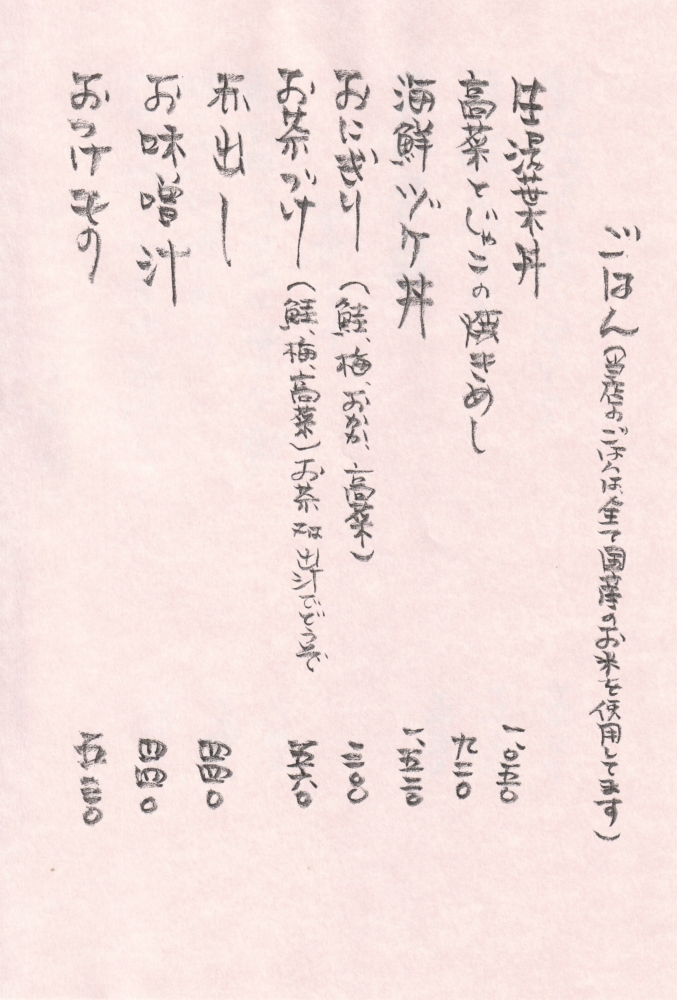 ごはん（当店のごはんは、全て国産のお米を使用してます）
生湯葉丼 一、〇五〇
高菜とじゃこの焼きめし 九二〇
海鮮ヅケ丼 一、五二〇
おにぎり（鮭、梅、おかか、高菜） 二〇〇
お茶づけ（鮭、梅、高菜）お茶又は出汁でどうぞ 五六〇
赤出し 四四〇
お味噌汁 四四〇
おつけもの 五三〇